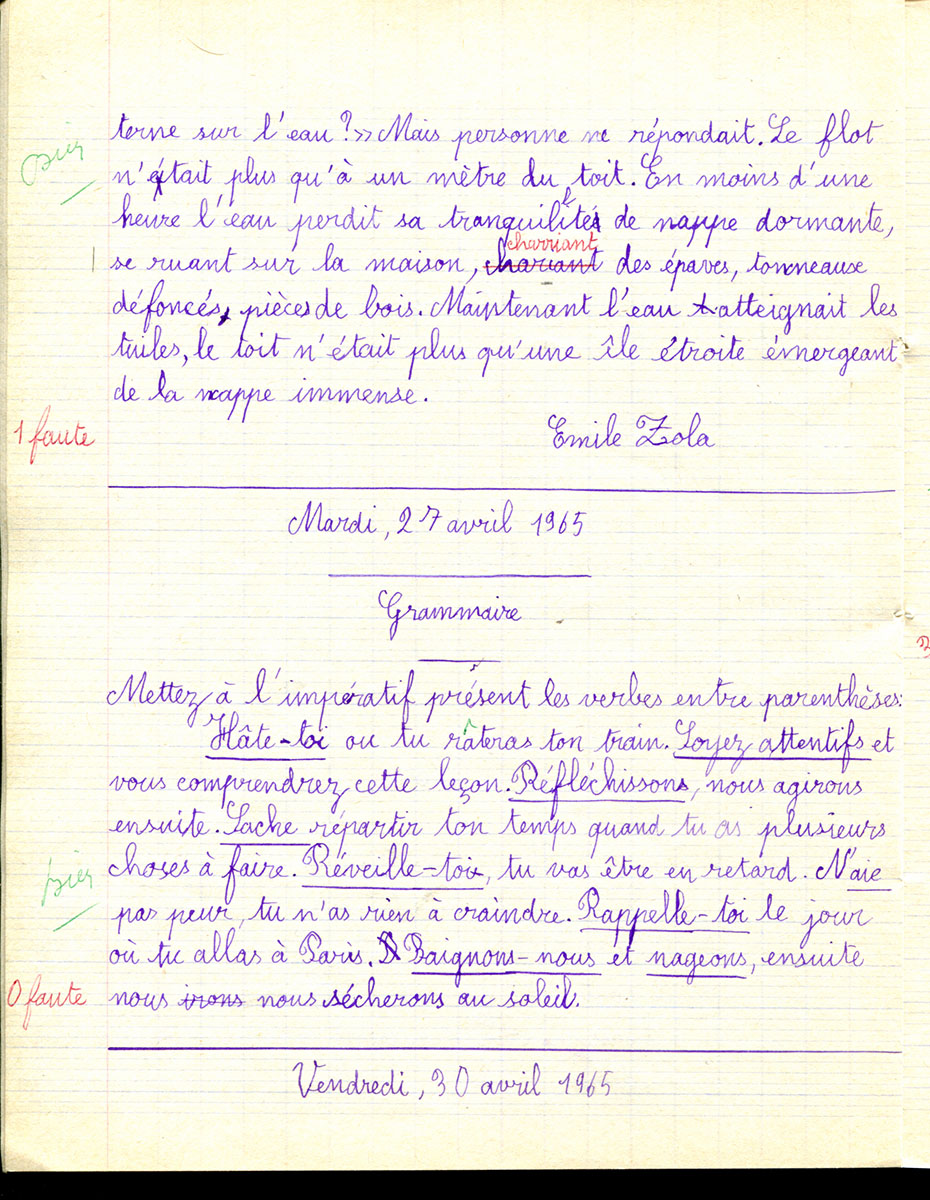 terne sur l'eau ?>> Mais personne ne répondait. Le flot
bien
n'était plus qu'à un mètre du toit. En moins d'une
heure l'eau perdit sa tranquilité de nappe dormante,
charruant
se ruant sur la maison, charuant des épaves, tonneaux
défoncés, pièces de bois. Maintenant l'eau atteignait les
tuiles, le toit n'était plus qu'une île étroite émergeant
de la nappe immense.
1 faute
Emile Zola
Mardi, 27 avril 1965
Grammaire
Mettez à l'impératif présent les verbes entre parenthèses:
Hâte-toi ou tu râteras ton train. Soyez attentifs et
vous comprendrez cette leçon. Réfléchissons, nous agirons
ensuite. Sache répartir ton temps quand tu as plusieurs
choses à faire. Réveille-toi, tu vas être en retard. N'aie
bien
pas peur, tu n'as rien à craindre. Rappelle-toi le jour
où tu allas à Paris. Baignons-nous et nageons, ensuite
0 faute
nous irons nous sécherons au soleil.
Vendredi, 30 avril 1965